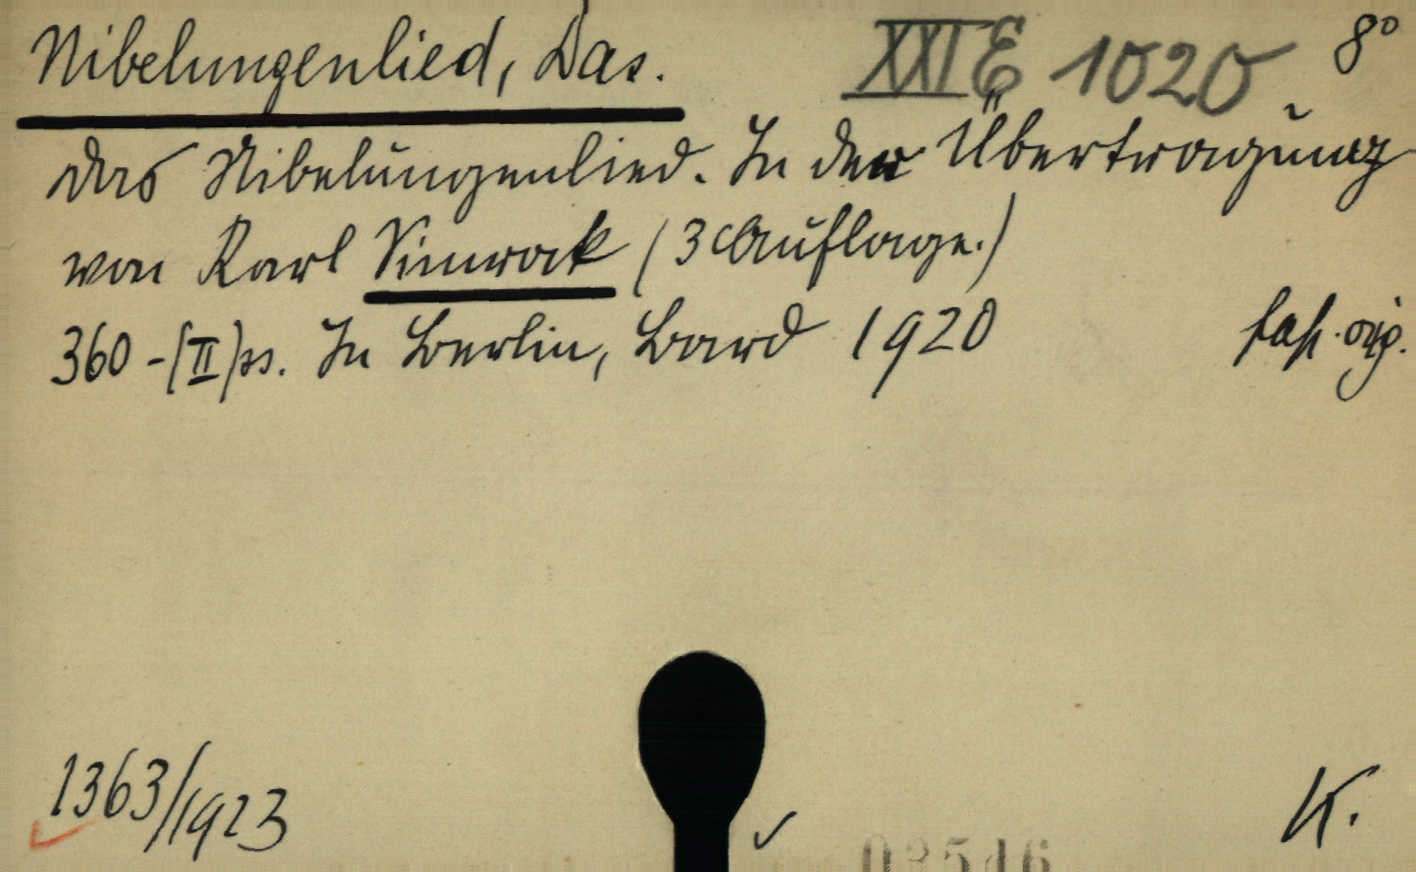 Nibelungenlied, Das.
XXI E 1020
8°
Das Nibelungenlied. In der Übertragung
von Karl Simrock (3 Auflage.)
360-(II) ss. In Berlin, Bard 1920
orig.
1363/1923
K.